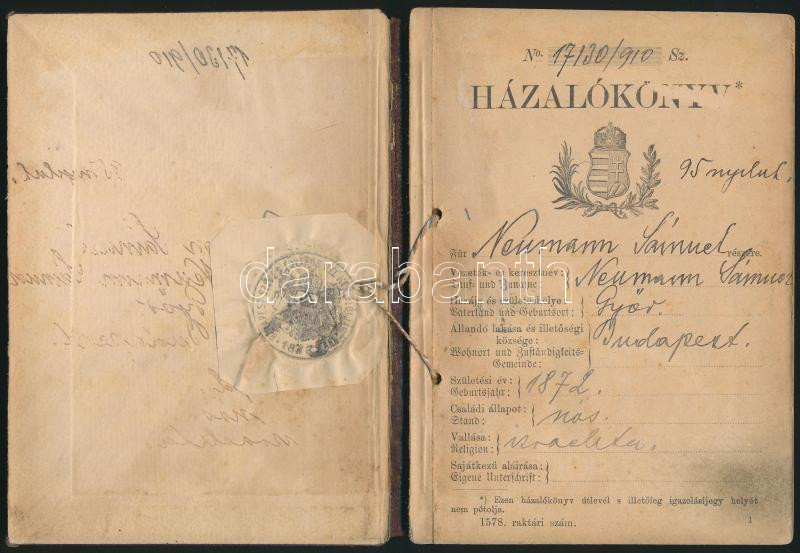 No. 17130/910 Sz.
HÁZALÓKÖNYV*
95 nyilat.
Für Neumann Sámuel részére.
Vezeték- és keresztnév:
Ruf- und Zuname: Neumann Sámuel
Hazája és születéshelye:
Vaterland und Geburtsort: Győr.
Állandó lakása és illetőségi
községe:
Wohnort und Zuständigkeits-
Gemeinde: Budapest.
Születési év:
Geburtsjahr: 1872.
Családi állapot:
Stand: nős.
Vallása:
Religion: izraelita.
Sajátkezű aláírása:
Eigene Unterschrift:
*) Ezen házalókönyv útlevél s illetőleg igazolásijegy helyét
nem pótolja.
1578. raktári szám.
1
darabanth